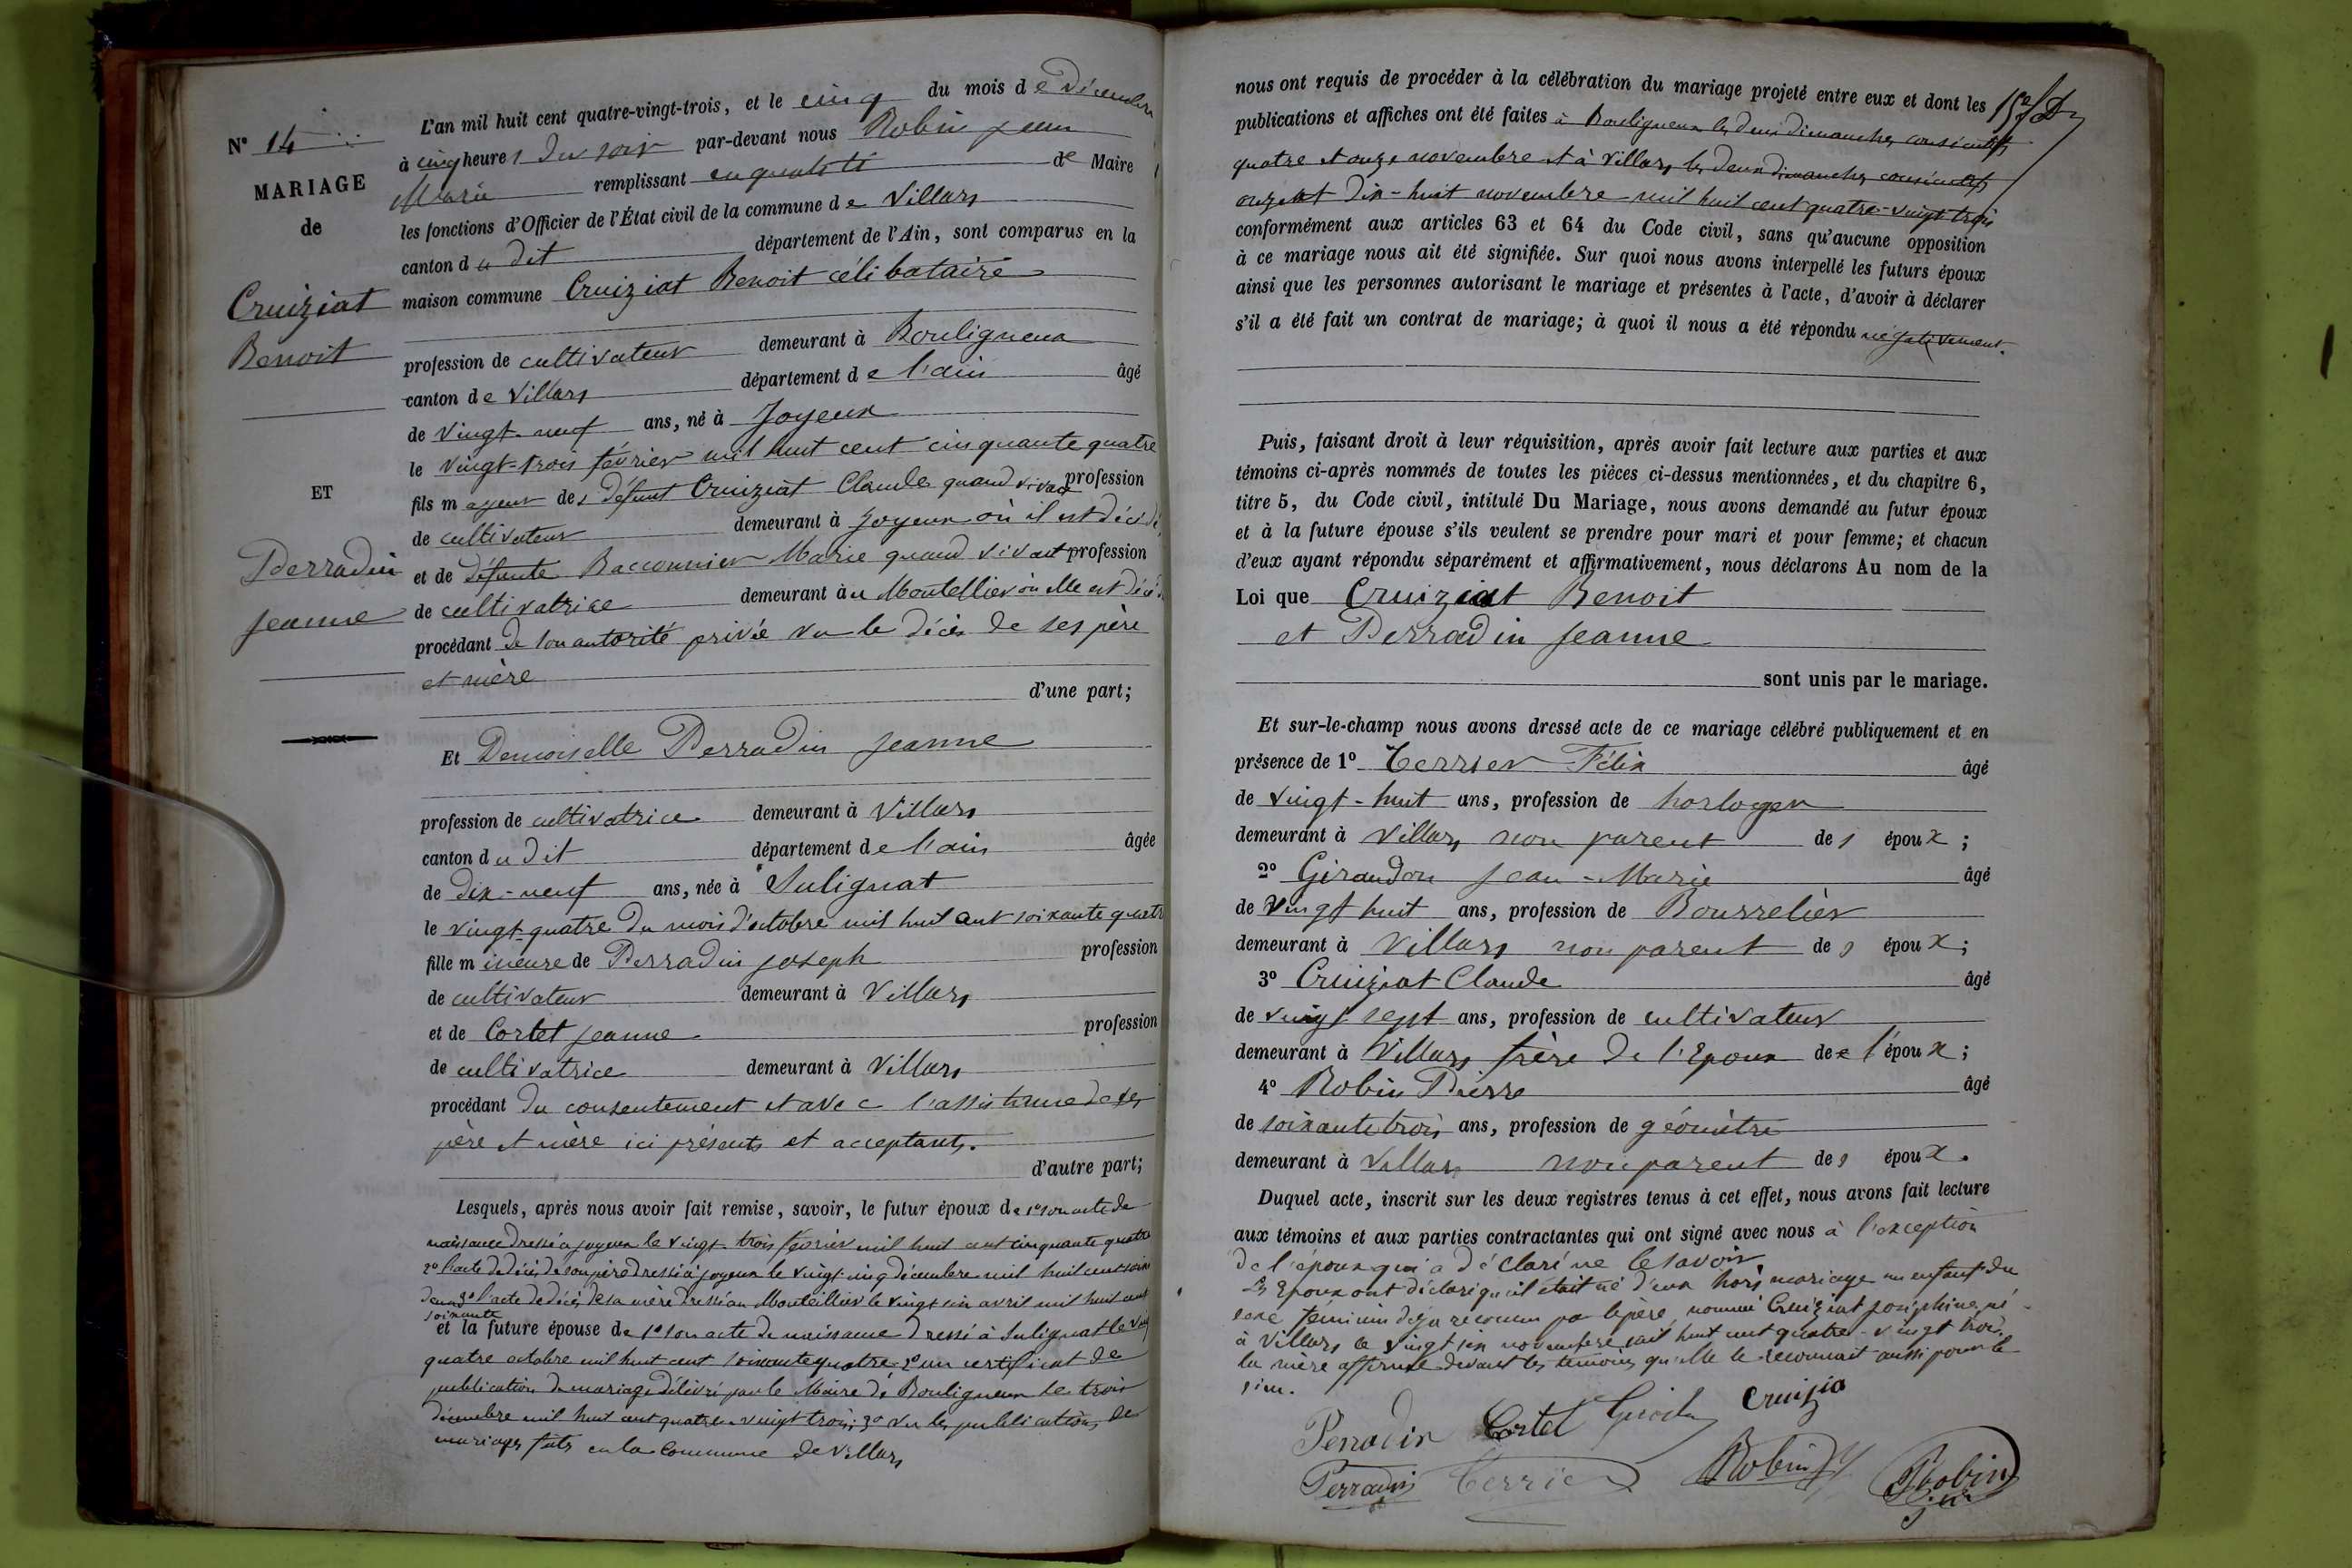 N° 14
MARIAGE
de
Cruiziat
Benoit
ET
Perradin
Jeanne
L'an mil huit cent quatre-vingt-trois, et le cinq du mois de Décembre
à cinq heures du soir par-devant nous Robin Jean
Marie remplissant en qualité de Maire
les fonctions d'Officier de l'État civil de la commune de Villars
canton du dit département de l'Ain, sont comparus en la
maison commune Cruiziat Benoit célibataire
profession de cultivateur demeurant à Bouligneux
canton de Villars département de l'ain âgé
de vingt-neuf ans, né à Joyeux
le vingt-trois février mil huit cent cinquante quatre
fils majeur des défunt Cruiziat Claude quand vivait profession
de cultivateur demeurant à Joyeux où il est décédé
et de défunte Bacconnier Marie quand vivait profession
de cultivatrice demeurant au Montellier où elle est décédé
procédant de son autorité privée vu le décès de ses père
et mère
d'une part;
Et Demoiselle Perradin Jeanne
profession de cultivatrice demeurant à Villars
canton du dit département de l'ain âgée
de dix-neuf ans, née à Sulignat
le vingt-quatre du mois d'octobre mil huit cent soixante quatre
fille mineure de Perradin Joseph profession
de cultivateur demeurant à Villars
et de Cortet Jeanne profession
de cultivatrice demeurant à Villars
procédant du consentement et avec l'assistance de ses
père et mère ici présents et acceptants.
d'autre part;
Lesquels, après nous avoir fait remise, savoir, le futur époux de 1° son acte de
naissance dressé à Joyeux le vingt-trois février mil huit cent cinquante quatre
2° l'acte de décès de son père dressé à Joyeux le vingt-cinq décembre mil huit cent soix
deux 3° l'acte de décès de sa mère dressé au Montellier le vingt six avril mil huit cent
soixante
et la future épouse de 1° son acte de naissance dressé à Sulignat le vingt
quatre octobre mil huit cent soixante quatre 2° un certificat de
publication de mariage délivré par le Maire de Bouligneux le trois
décembre mil huit cent quatre-vingt trois; 3° vu les publications de
mariages faits en la commune de Villars
nous ont requis de procéder à la célébration du mariage projeté entre eux et dont les
publications et affiches ont été faites à Bouligneux les deux dimanches consécutifs
quatre et onze novembre et à Villars les deux dimanches consécutifs
onze et dix-huit novembre mil huit cent quatre-vingt trois
conformément aux articles 63 et 64 du Code civil, sans qu'aucune opposition
à ce mariage nous ait été signifiée. Sur quoi nous avons interpellé les futurs époux
ainsi que les personnes autorisant le mariage et présentes à l'acte, d'avoir à déclarer
s'il a été fait un contrat de mariage; à quoi il nous a été répondu négativement.
Puis, faisant droit à leur réquisition, après avoir fait lecture aux parties et aux
témoins ci-après nommés de toutes les pièces ci-dessus mentionnées, et du chapitre 6,
titre 5, du Code civil, intitulé Du Mariage, nous avons demandé au futur époux
et à la future épouse s'ils veulent se prendre pour mari et pour femme; et chacun
d'eux ayant répondu séparément et affirmativement, nous déclarons Au nom de la
Loi que Cruiziat Benoit
et Perradin Jeanne
sont unis par le mariage.
Et sur-le-champ nous avons dressé acte de ce mariage célébré publiquement et en
présence de 1° Terrier Félix âgé
de vingt-huit ans, profession de horloger
demeurant à Villars non parent des époux;
2° Giraudon Jean-Marie âgé
de vingt huit ans, profession de Bourrelier
demeurant à Villars non parent des époux;
3° Cruiziat Claude âgé
de vingt sept ans, profession de cultivateur
demeurant à Villars frère de l'Epoux de l'époux;
4° Robin Pierre âgé
de soixante trois ans, profession de géomètre
demeurant à Villars non parent des époux.
Duquel acte, inscrit sur les deux registres tenus à cet effet, nous avons fait lecture
aux témoins et aux parties contractantes qui ont signé avec nous à l'exception
de l'époux qui a déclaré ne le savoir.
Les Epoux ont déclaré qu'il était né d'eux hors mariage un enfant du
sexe féminin déjà reconnu par le père, nommé Cruiziat Joséphine, né
à Villars le vingt six novembre mil huit cent quatre-vingt trois.
la mère affirme devant les témoins qu'elle le reconnait aussi pour le
sien.
Perradin Cortet Cruizia
Perradin Terrier Robin Robin